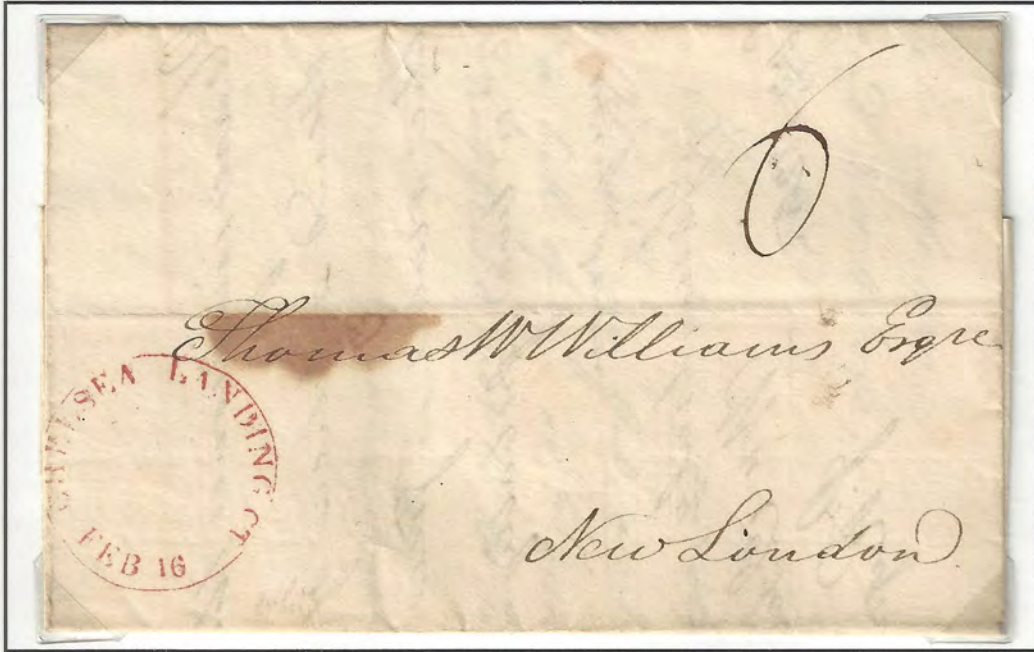 6
Thomas W Williams Esqre
CHELSEA LANDING CT
FEB 16
New London